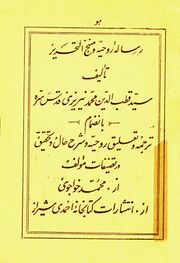 هو
رساله روحیه و منهج التحریر
تألیف
سید قطب الدین محمد نیریزی قدس سره
بانضمام
ترجمه و تعلیق روحیه و شرح حال و تحقیق
در تصنیفات مؤلف
از: محمد خواجوی
از: انتشارات کتابخانه احمدی شیراز